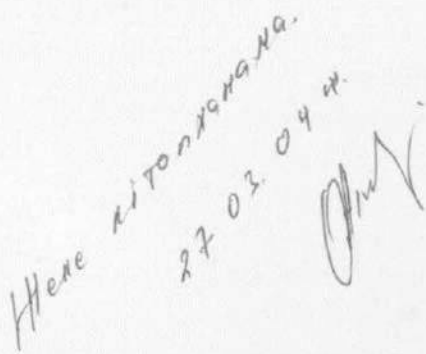 Жеке кітапханама.
27 03. 04 ж.